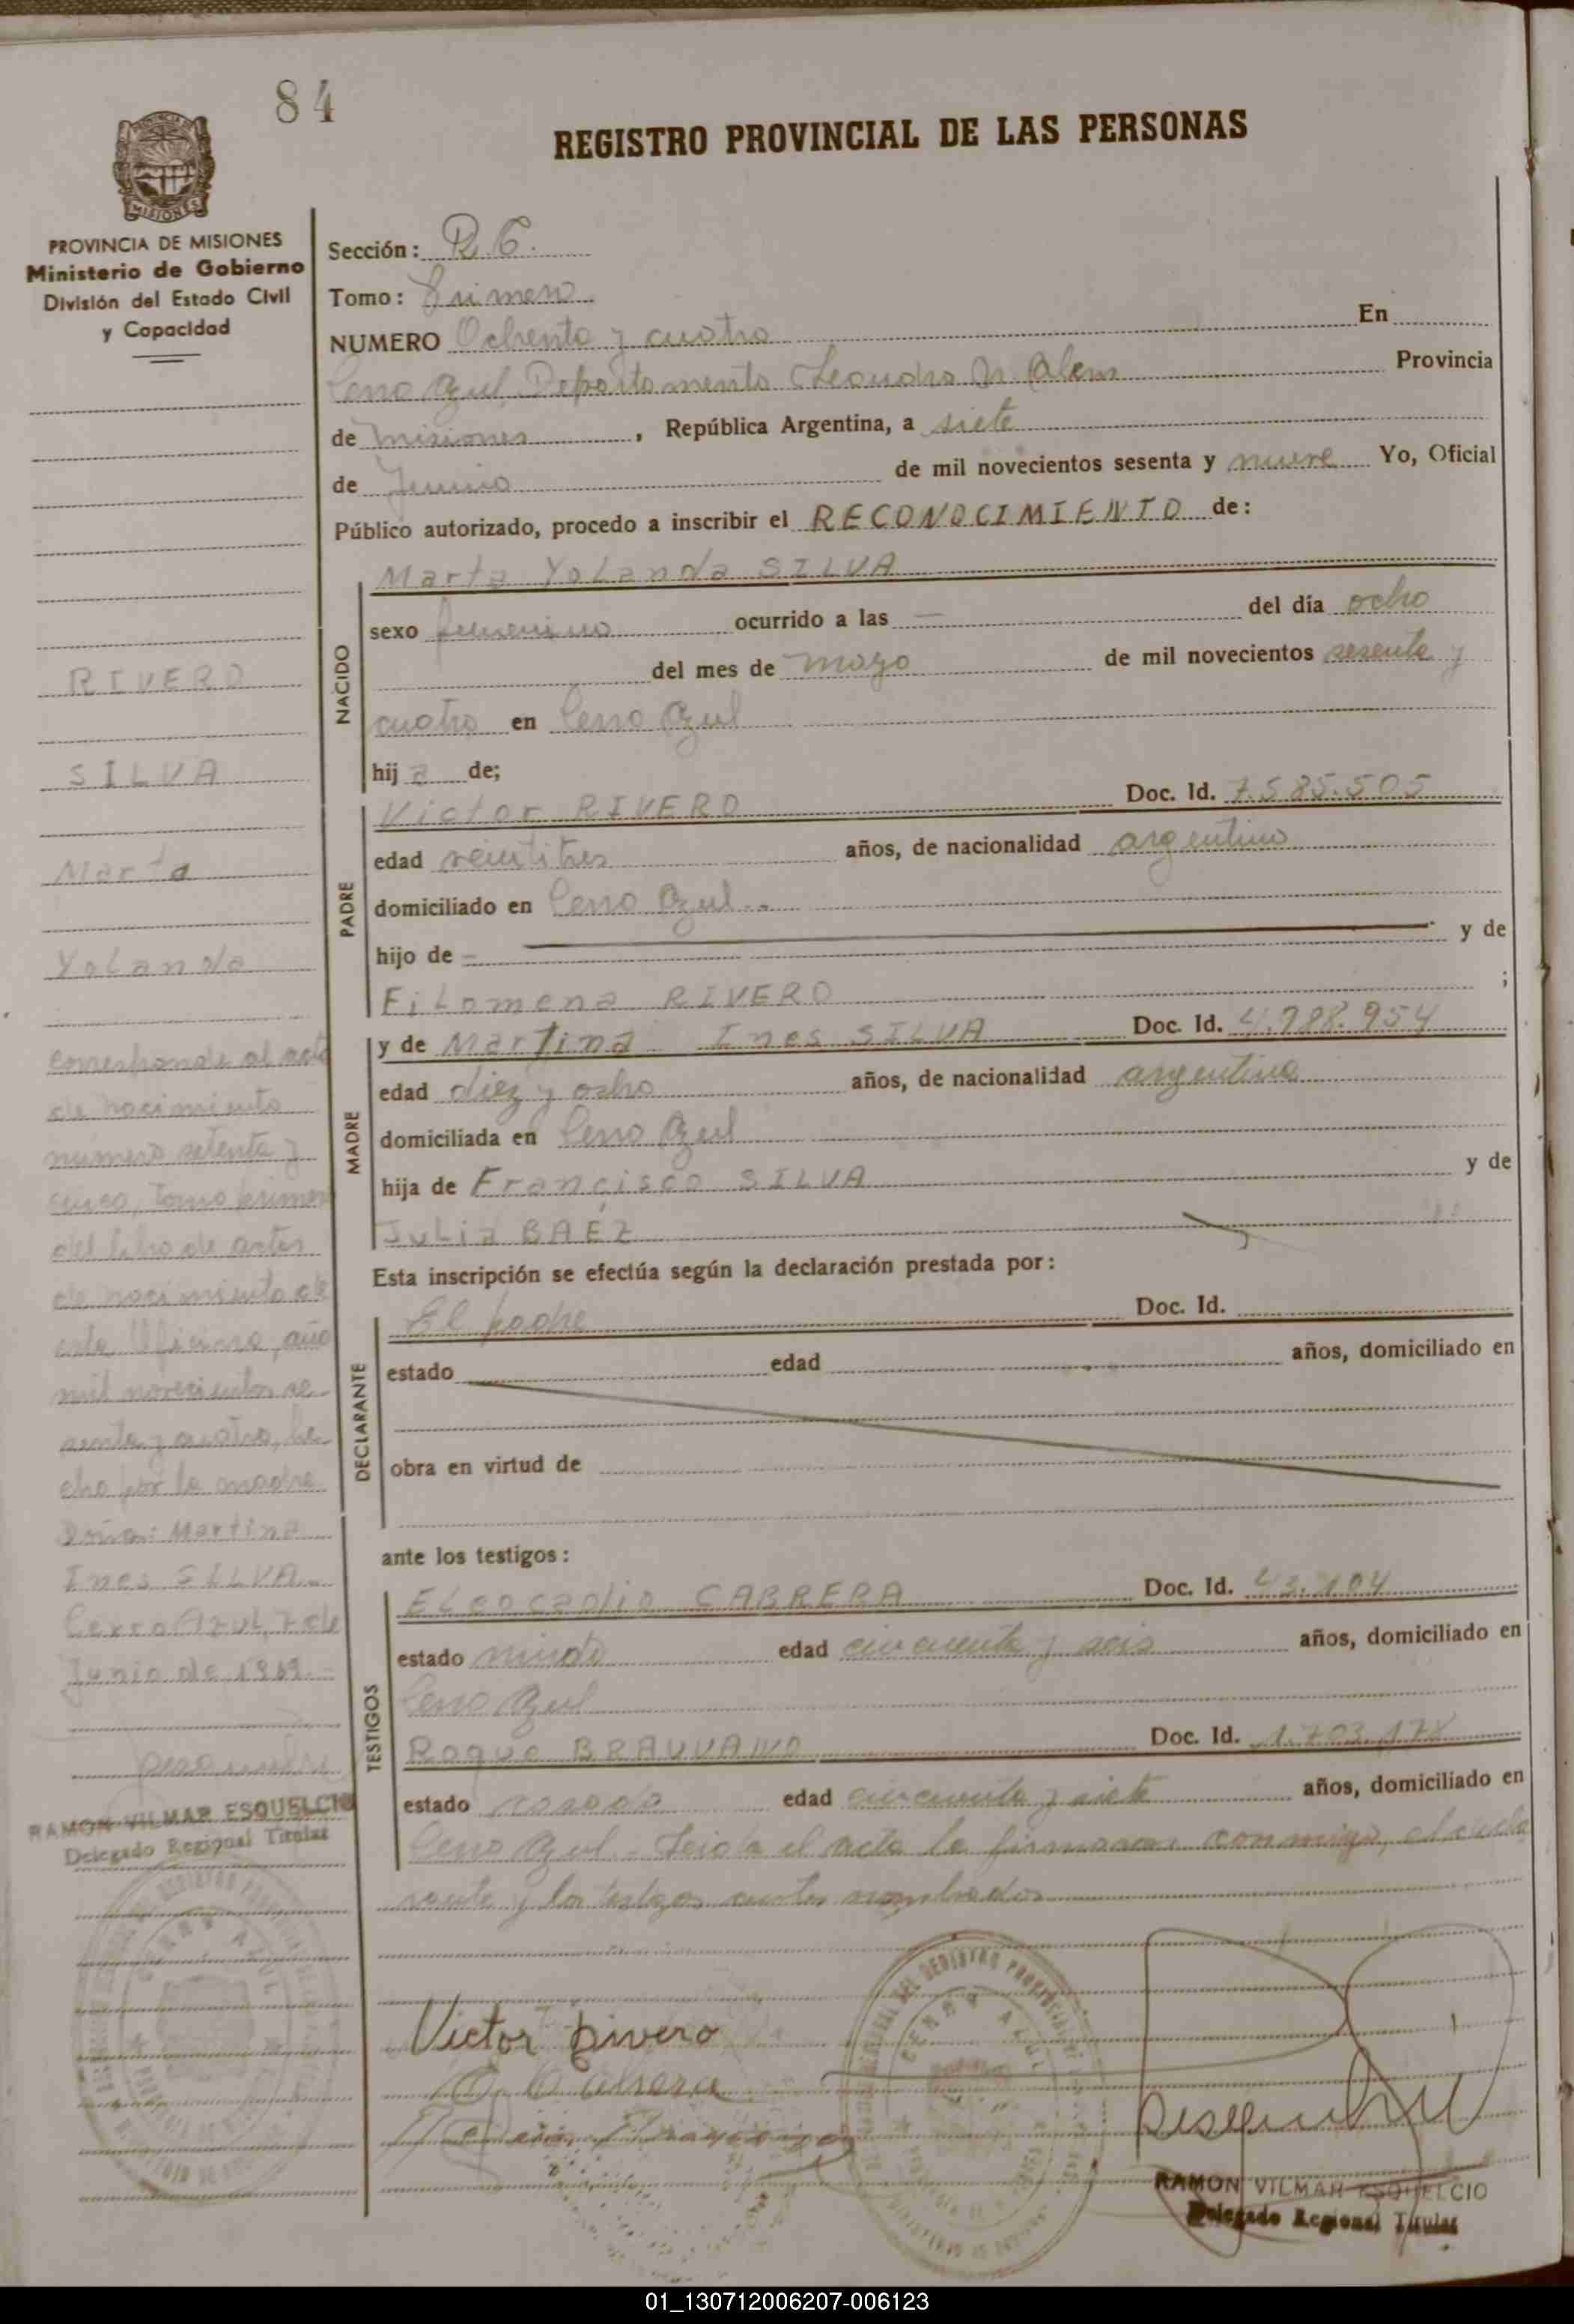 84
REGISTRO PROVINCIAL DE LAS PERSONAS
MISIONES
PROVINCIA DE MISIONES
Ministerio de Gobierno
División del Estado Civil
y Capacidad
RIVERO
SILVA
Marta
Yolanda
corresponde al acta
de nacimiento
numero setenta y
cinco, tomo primero
del libro de actas
de nacimiento de
esta Oficina, año
mil novecientos se-
senta y cuatro, he-
cho por la madre
Doña: Martina
Ines SILVA.-
Cerro Azul, 7 de
Junio de 1969.-
RAMON VILMAR ESQUELCIO
Delegado Regional Titular
Sección:
Tomo: Primero
NUMERO Ochenta y cuatro En
Cerro Azul, Departamento Leandro N. Alem Provincia
de Misiones, República Argentina, a siete
de Junio de mil novecientos sesenta y nueve Yo, Oficial
Público autorizado, procedo a inscribir el RECONOCIMIENTO de:
NACIDO
Marta Yolanda SILVA
sexo femenino ocurrido a las — del día ocho
del mes de mayo de mil novecientos sesenta y
cuatro en Cerro Azul
hija de;
PADRE
Victor RIVERO Doc. Id. 7.585.505
edad veintitres años, de nacionalidad argentino
domiciliado en Cerro Azul.-
hijo de — y de
Filomena RIVERO ;
MADRE
y de Martina Ines SILVA Doc. Id. 4.988.954
edad diez y ocho años, de nacionalidad argentina
domiciliada en Cerro Azul
hija de Francisco SILVA y de
Julia BAEZ
Esta inscripción se efectúa según la declaración prestada por:
DECLARANTE
El padre Doc. Id.
estado edad años, domiciliado en
obra en virtud de
ante los testigos:
TESTIGOS
Eleocadio CABRERA Doc. Id.
estado viudo edad cincuenta y seis años, domiciliado en
Cerro Azul
Roque Doc. Id. 1.703.178
estado casado edad cincuenta y siete años, domiciliado en
Cerro Azul - Leida el acta la firmaron conmigo, el decla
rante y los testigos antes nombrados
Victor Rivero
RAMON VILMAR ESQUELCIO
Delegado Regional Titular
01_130712006207-006123